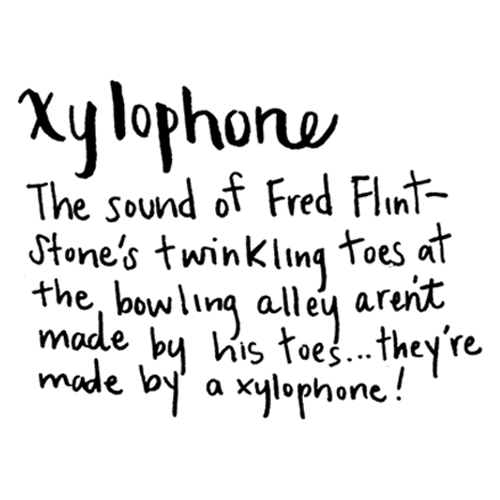 xylophone
The sound of Fred Flint-
Stone's twinkling toes at
the bowling alley aren't
made by his toes...they're
made by a xylophone!